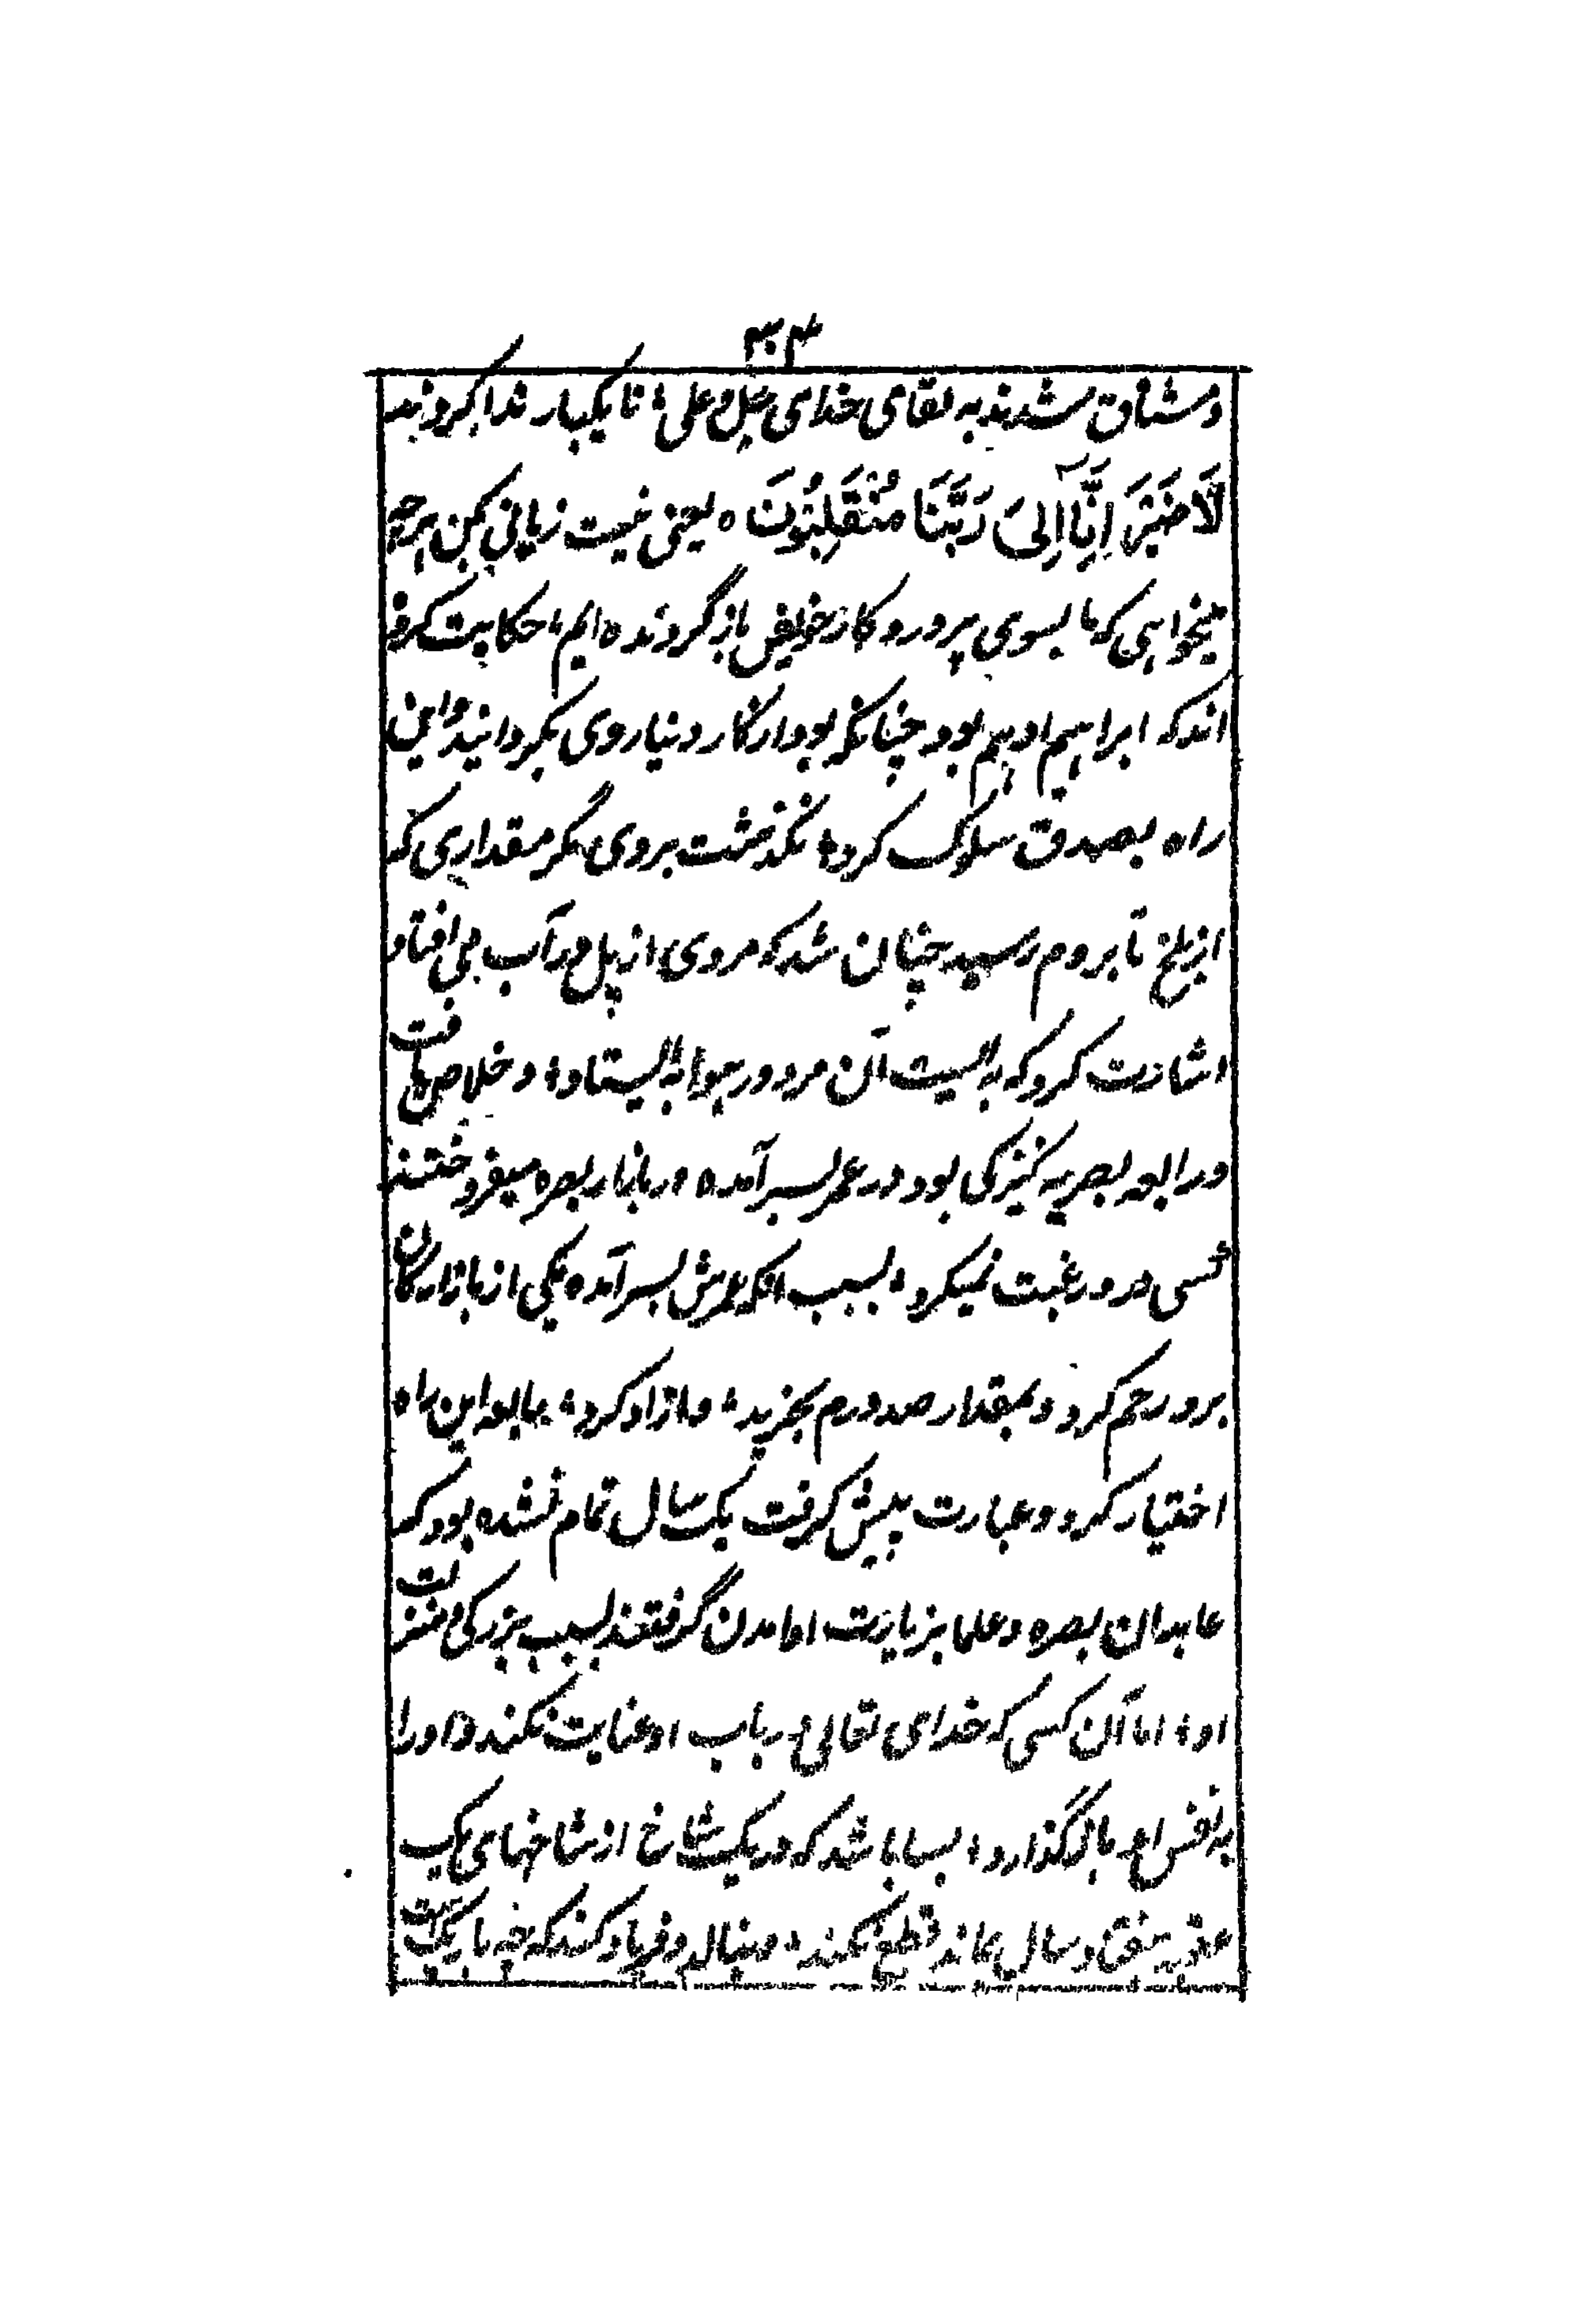 ۳۰۴
و مشتاق شدند به لقای خدای عز و علی؛ تا یکبار ندا کردند
لَا ضَيْرَ اِنَّا اِلَىٰ رَبِّنَا مُنْقَلِبُونَ ه یعنی نیست زیانی بکن هرچه
میخواهی که ما بسوی پروردکار خویش باز گردنده ایم؛ حکایت کرده
اند که ابراهیم ادهم بود چنانکه بود از کار دنیا روی بگردانید و این
راه بصدق سلوک کرد؛ نگذشت بروی مگر مقداری که
از بلخ تا بروم رسید چنان شد که مردی از پل در آب می افتاد
اشارت کرد که بایست آن مرد در هوا بایستاد؛ و خلاص یافت
و رابعه بصریه کنیزکی بود در عمر بسر آمده در بازار بصره میفروختند
کسی درو رغبت نمیکرد؛ بسبب آنکه عمرش بسر آمده یکی از بازارکان
برو رحم کرد و بمقدار صد درم بخرید؛ و آزاد کرد؛ رابعه این راه
اختیار کرد و عبادت پیش کرفت یک سال تمام نشده بود که
عابدان بصره و علما بزیارت او آمدن گرفتند بسبب بزرکی و منزلت
او؛ اما آن کسی که خدای تعالی در باب او عنایت نکند و او را
به نفس او باز گذارد؛ بسا باشد که در یک شاخ از شاخهای یک
عقبه هفتاد سال بماند قطع نکند؛ و بنالد و فریاد کند که چه باریکست